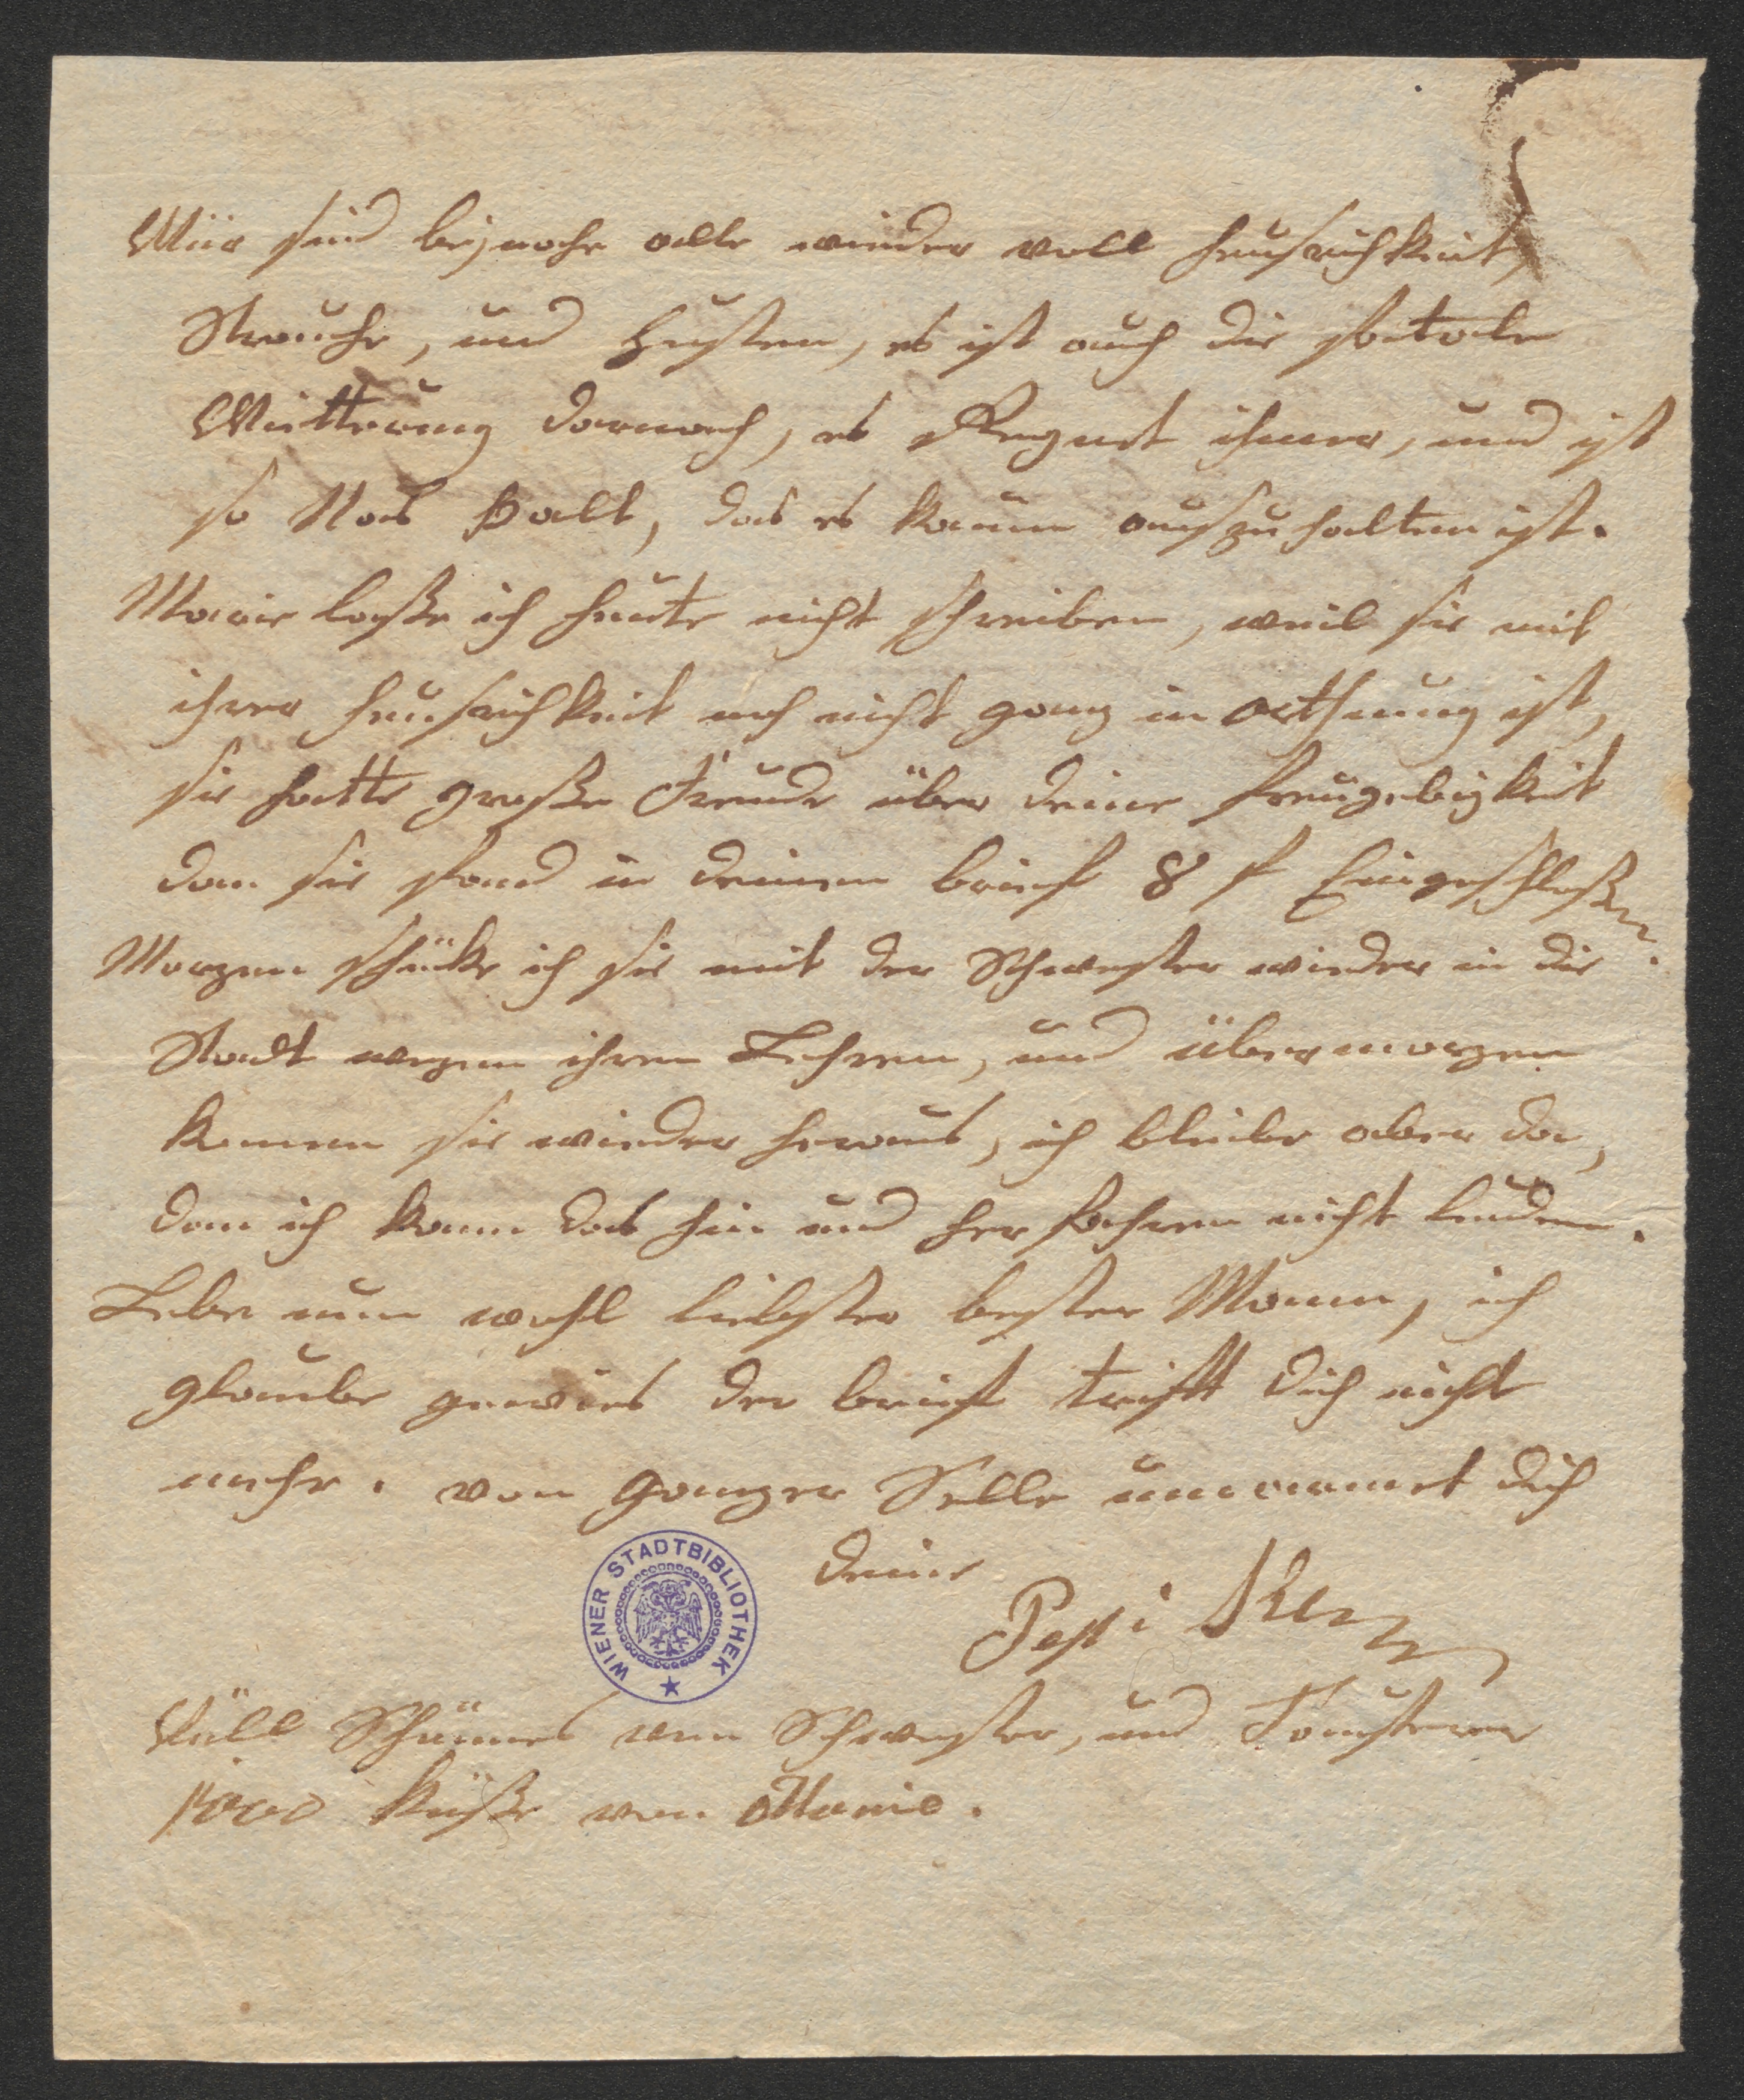 Wiir sind beynahe alle wieder voll heusrichkeit,
Strauche, und Husten, es ist auch die fatale
Wietterung darnach, es Regnet ihmer, und ist
so Nas kalt, das es kaum auszuhalten ist.
Marie laße ich heute nicht schreiben, weil sie mit
ihrer heusrichkeit noch nicht ganz in orthnung ist,
sie hatte große Freude über deine freugebigkeit
dan sie fand in deinen brief 8 f Eingeschloßen.
Morgen schüke ich sie mit der Schwester wieder in die
Stadt wegen ihren Lehren, und übermorgen
komen sie wieder heraus, ich bleibe aber da,
dan ich kann das hin und her fahren nicht leiden.
Lebe nun wohl liebster bester Mann, ich
glaube gewies der brief trift dich nicht
mehr. von ganzer Selle umarmet dich
deine
Pepi
Vüll Schünes von Schwester, und
1000 küße von Marie.
WIENER STADTBIBLIOTHEK